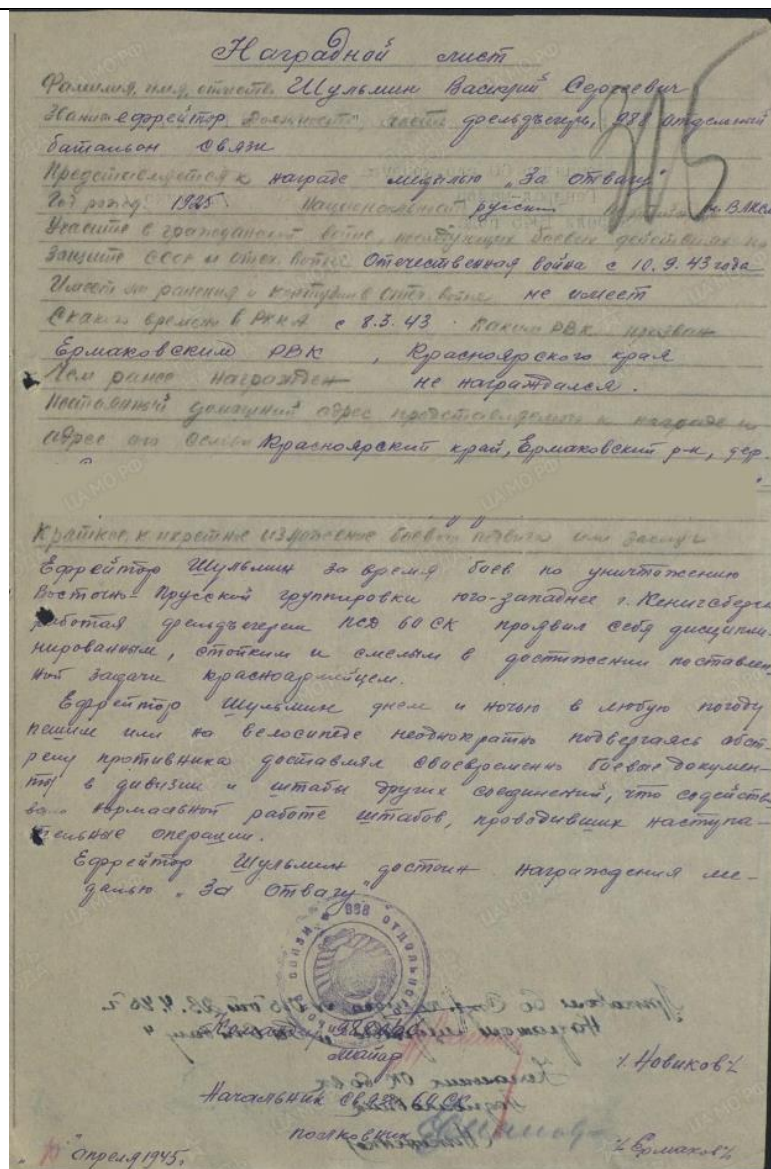 Наградной лист
Фамилия, имя, отчество Шульмин Василий Сергеевич
Звание ефрейтор Должность, часть фельдъегерь, 988 отдельный
батальон связи
Представляется к награде медалью „За отвагу"
Год рожд. 1925 Национальность русский Партийн. чл. ВЛКСМ
Участие в гражданской войне, последующих боевых действиях по
защите СССР и отеч. войне Отечественная война с 10.9.43 года
Имеет ли ранения и контузии в отеч. войне не имеет
С какого времени в РККА с 8.3.43 Каким РВК призван
Ермаковским РВК, Красноярского края
Чем ранее награжден не награждался.
Постоянный домашний адрес представляемого к награде и
адрес его семьи Красноярский край, Ермаковский р-н, дер.
Краткое, конкретное изложение боевого подвига или заслуг
Ефрейтор Шульмин за время боев по уничтожению
Восточно-Прусской группировки юго-западнее г. Кенигсберга
работая фельдъегерем ПСД 60 СК проявил себя дисципли-
нированным, стойким и смелым в достижении поставлен
ной задачи красноармейцем.
Ефрейтор Шульмин днем и ночью в любую погоду
пешим или на велосипеде неоднократно подвергаясь обст-
релу противника доставлял своевременно боевые докумен-
ты в дивизии и штабы других соединений, что содейств
вало нормальной работе штабов, проводивших наступа-
тельные операции.
Ефрейтор Шульмин достоин награждения ме-
далью „За отвагу"
связи 988 отдельн
Командир 988
майор
/Новиков/
Начальник связи 60 СК
полковник
/Ермаков/
" апреля 1945г.
315
ЦАМО.РФ